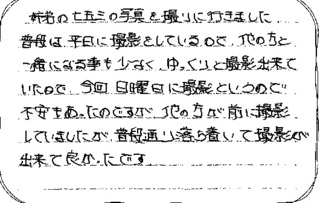 の七五三の写真を撮りに行きました
普段は平日に撮影をしているので、他の方と
一緒になる事も少なく、ゆっくりと撮影出来て
いたので、今回日曜日に撮影というので
不安もあったのですが、他の方が前に撮影
していましたが、普段通り落ち着いて撮影が
出来て良かったです